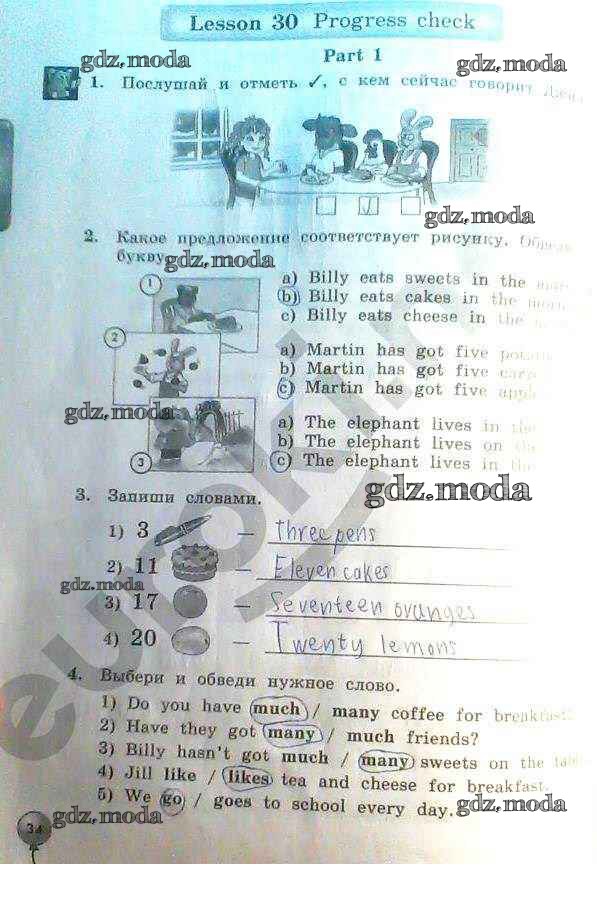 Lesson 30 Progress check
Part 1
gdz.moda
gdz.moda
1. Послушай и отметь ✓, с кем сейчас говорит
gdz.moda
2. Какое предложение соответствует рисунку.
букву
gdz.moda
1
a) Billy eats sweets in the
b) Billy eats cakes in the
c) Billy eats cheese in the
2
a) Martin has got five
b) Martin has got five
c) Martin has got five
gdz.moda
3
a) The elephant lives in the
b) The elephant lives on the
c) The elephant lives in the
gdz.moda
3. Запиши словами.
1) 3 — Three pens
2) 11 — Eleven cakes
gdz.moda
3) 17 — Seventeen oranges
4) 20 — Twenty lemons
4. Выбери и обведи нужное слово.
1) Do you have much / many coffee for breakfast?
2) Have they got many / much friends?
3) Billy hasn't got much / many sweets on the
4) Jill like / likes tea and cheese for breakfast.
5) We go / goes to school every day.
gdz.moda
gdz.moda
34
eurokin